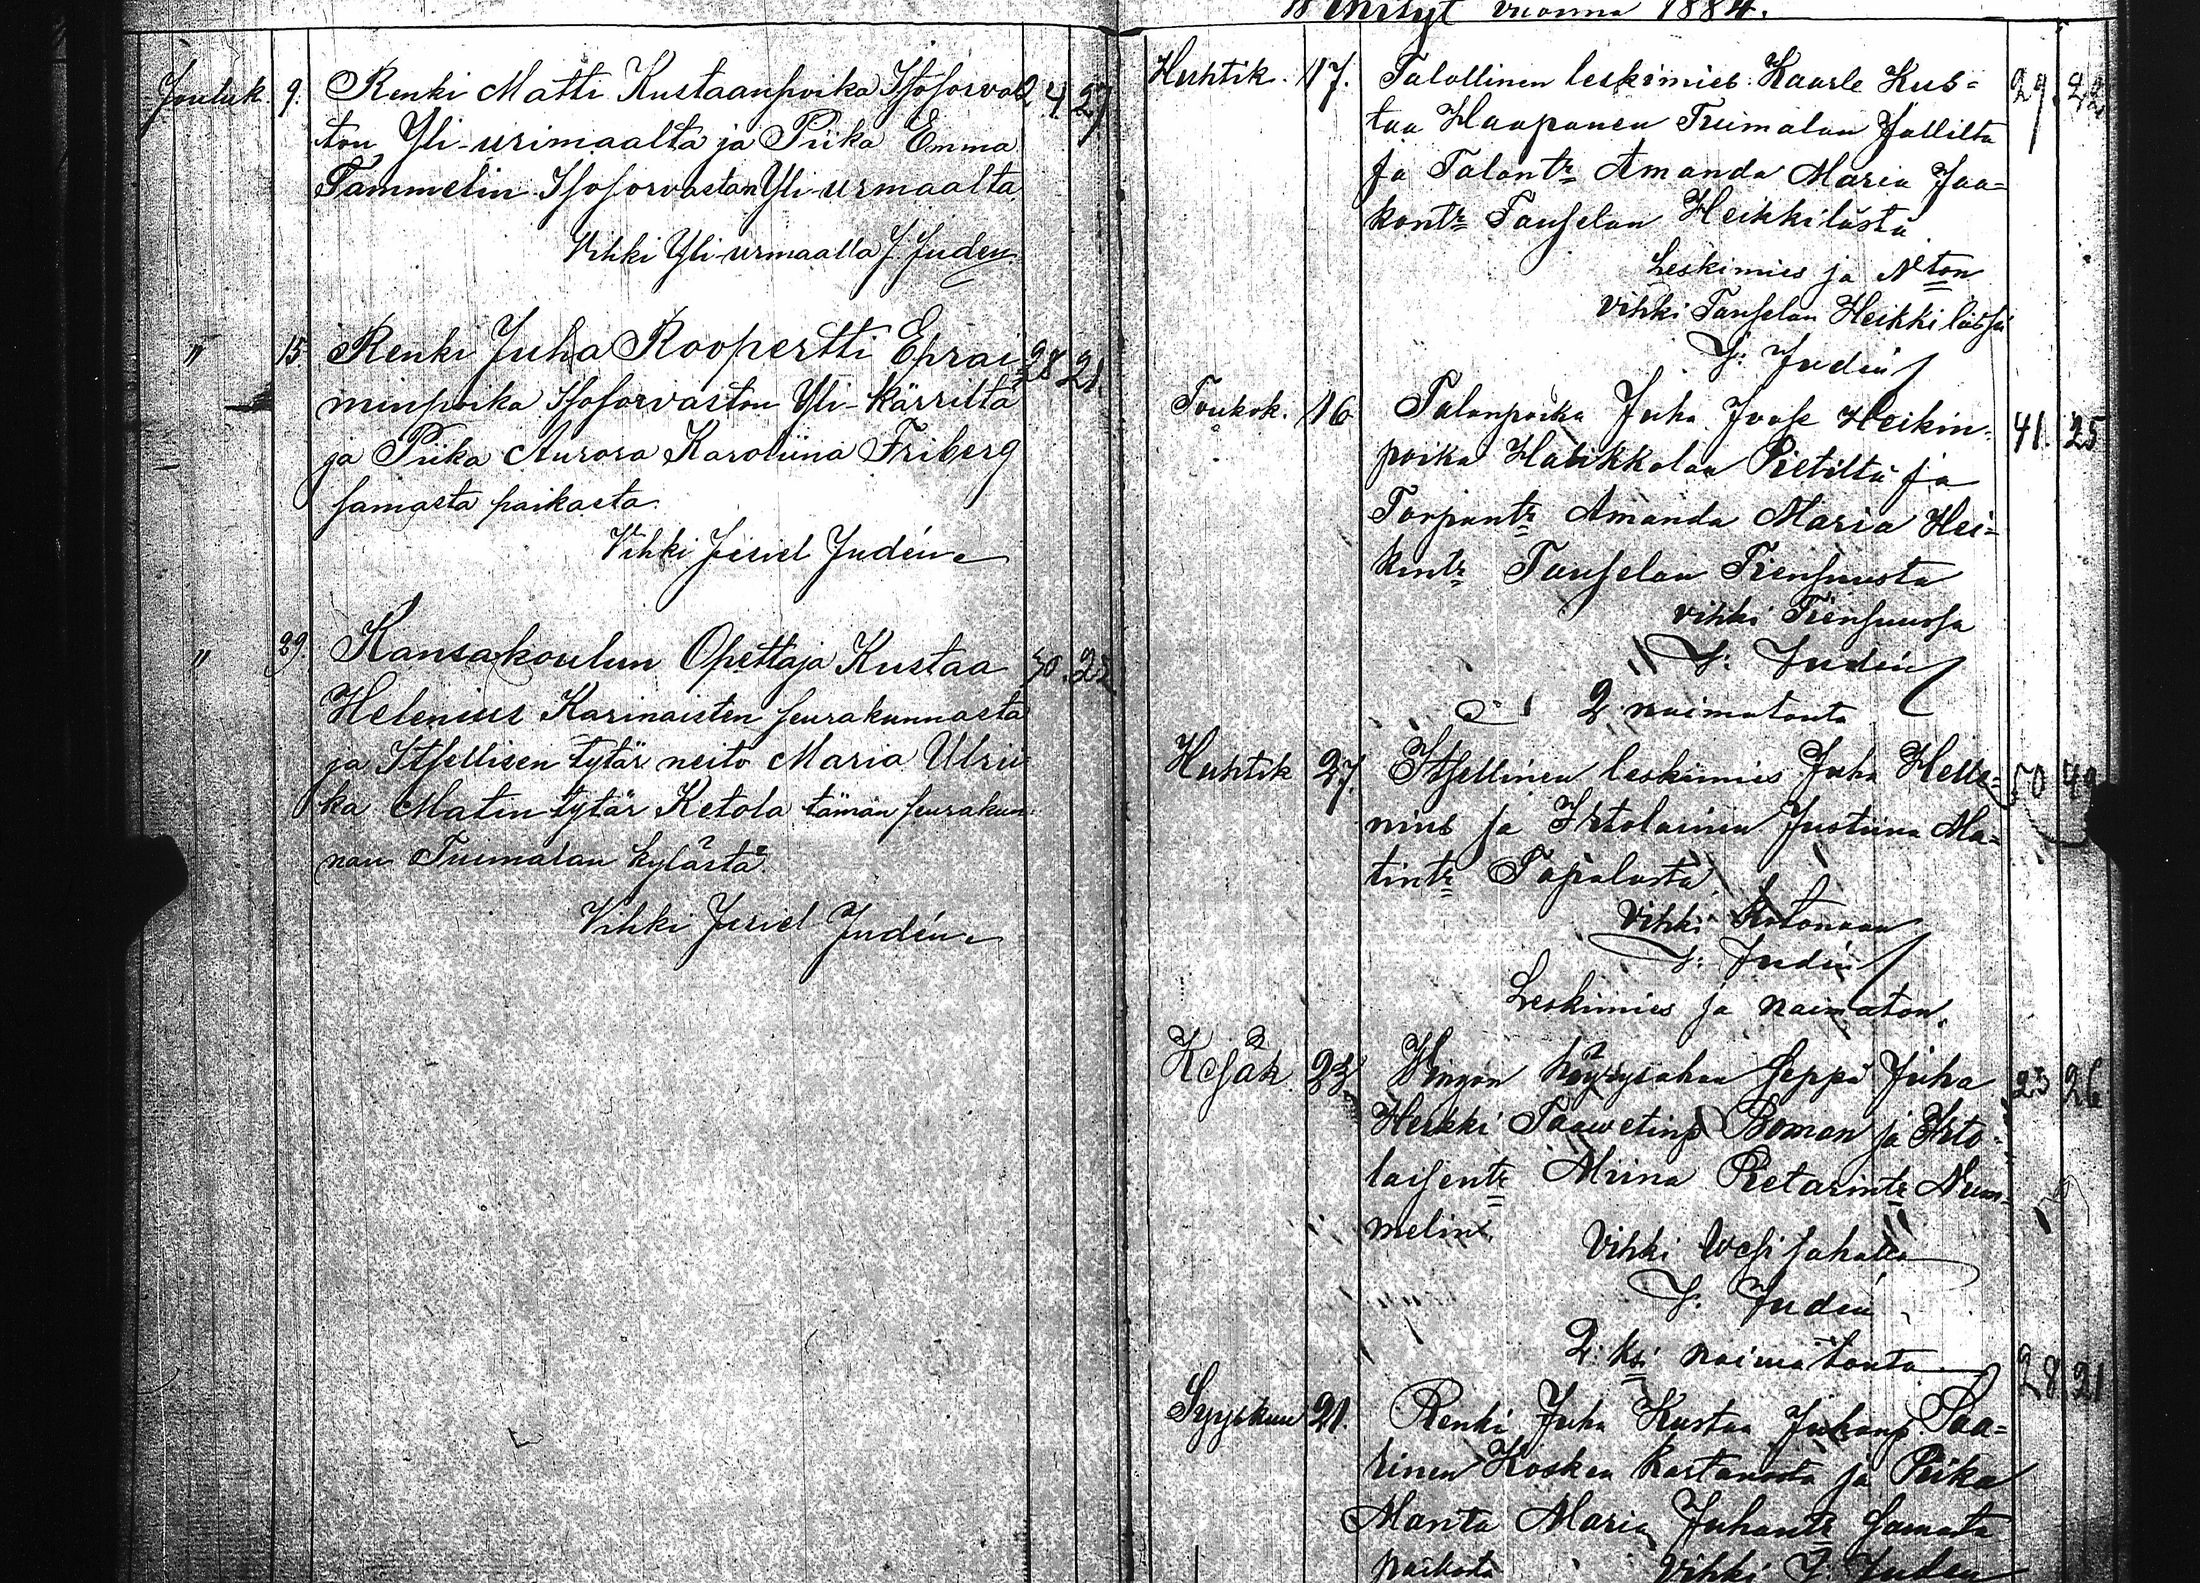 Jouluk. 9. Renki Matti Kustaanpoika Isosorvas 24 27
ton Yli-urimaalta ja Piika Emma
Tammelin Isosorvaston Yli-urmaalta.
Vihki Yli-urmaalla J. Juden.
" 15. Renki Juha Roopertti Eprai= 28 21.
minpoika Isosorvaston Yli-Kärriltä
ja Piika Aurora Karoliina Friberg
samasta paikasta.
Vihki Jesiel Judén
" 29. Kansakoulun Opettaja Kustaa 30. 22
Helenius Karinaisten seurakunnasta
ja Itsellisen tytär neito Maria Ulrii=
ka Matin tytär Ketola tämän seurakun=
nan Tuimalan kylästä.
Vihki Jesiel Judén
Wihityt vuonna 1884.
Huhtik. 17. Talollinen leskimies Kaarle Kus= 29. 22
taa Haapanen Tuimalan Jallilta
ja Talontr Amanda Maria Jaa=
kontr Tauselan Heikkilästä
Leskimies ja Nton
Vihki Tauselan Heikkilässä
J. Judén
Toukok. 16 Talonpoika Juha Ivase Heikin= 41. 25
poika Halikkolan Pietiltä ja
Torpantr Amanda Maria Hei=
kintr Tauselan Tiensuusta
vihki Tiensuussa
J. Judén
2 naimatonta
Huhtik 27. Itsellinen leskimies Juha Helle= 50 49
nius ja Irtolainen Justiina Ma=
tintr Topalasta
Vihki Kotonaan
J. Judén
Leskimies ja naimaton.
Kesäk 23 höyrysahan seppä Juha 23 26
Heikki Taawetinp Boman ja Irto=
laisentr Miina Pietarintr Num=
melin.
Vihki Wesisahalla
J. Judén
2:ksi naimatonta
Syyskuu 21. Renki Juha Kustaa Juhanp. Saa= 28. 21
rinen Kosken kartanosta ja Piika
Manta Maria Juhantr samasta
paikasta Vihki J. Juden